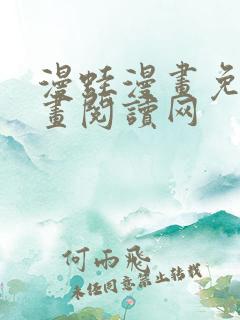 漫蛙漫畫免
畫閱讀网
何雨飛
未经同意禁止转载